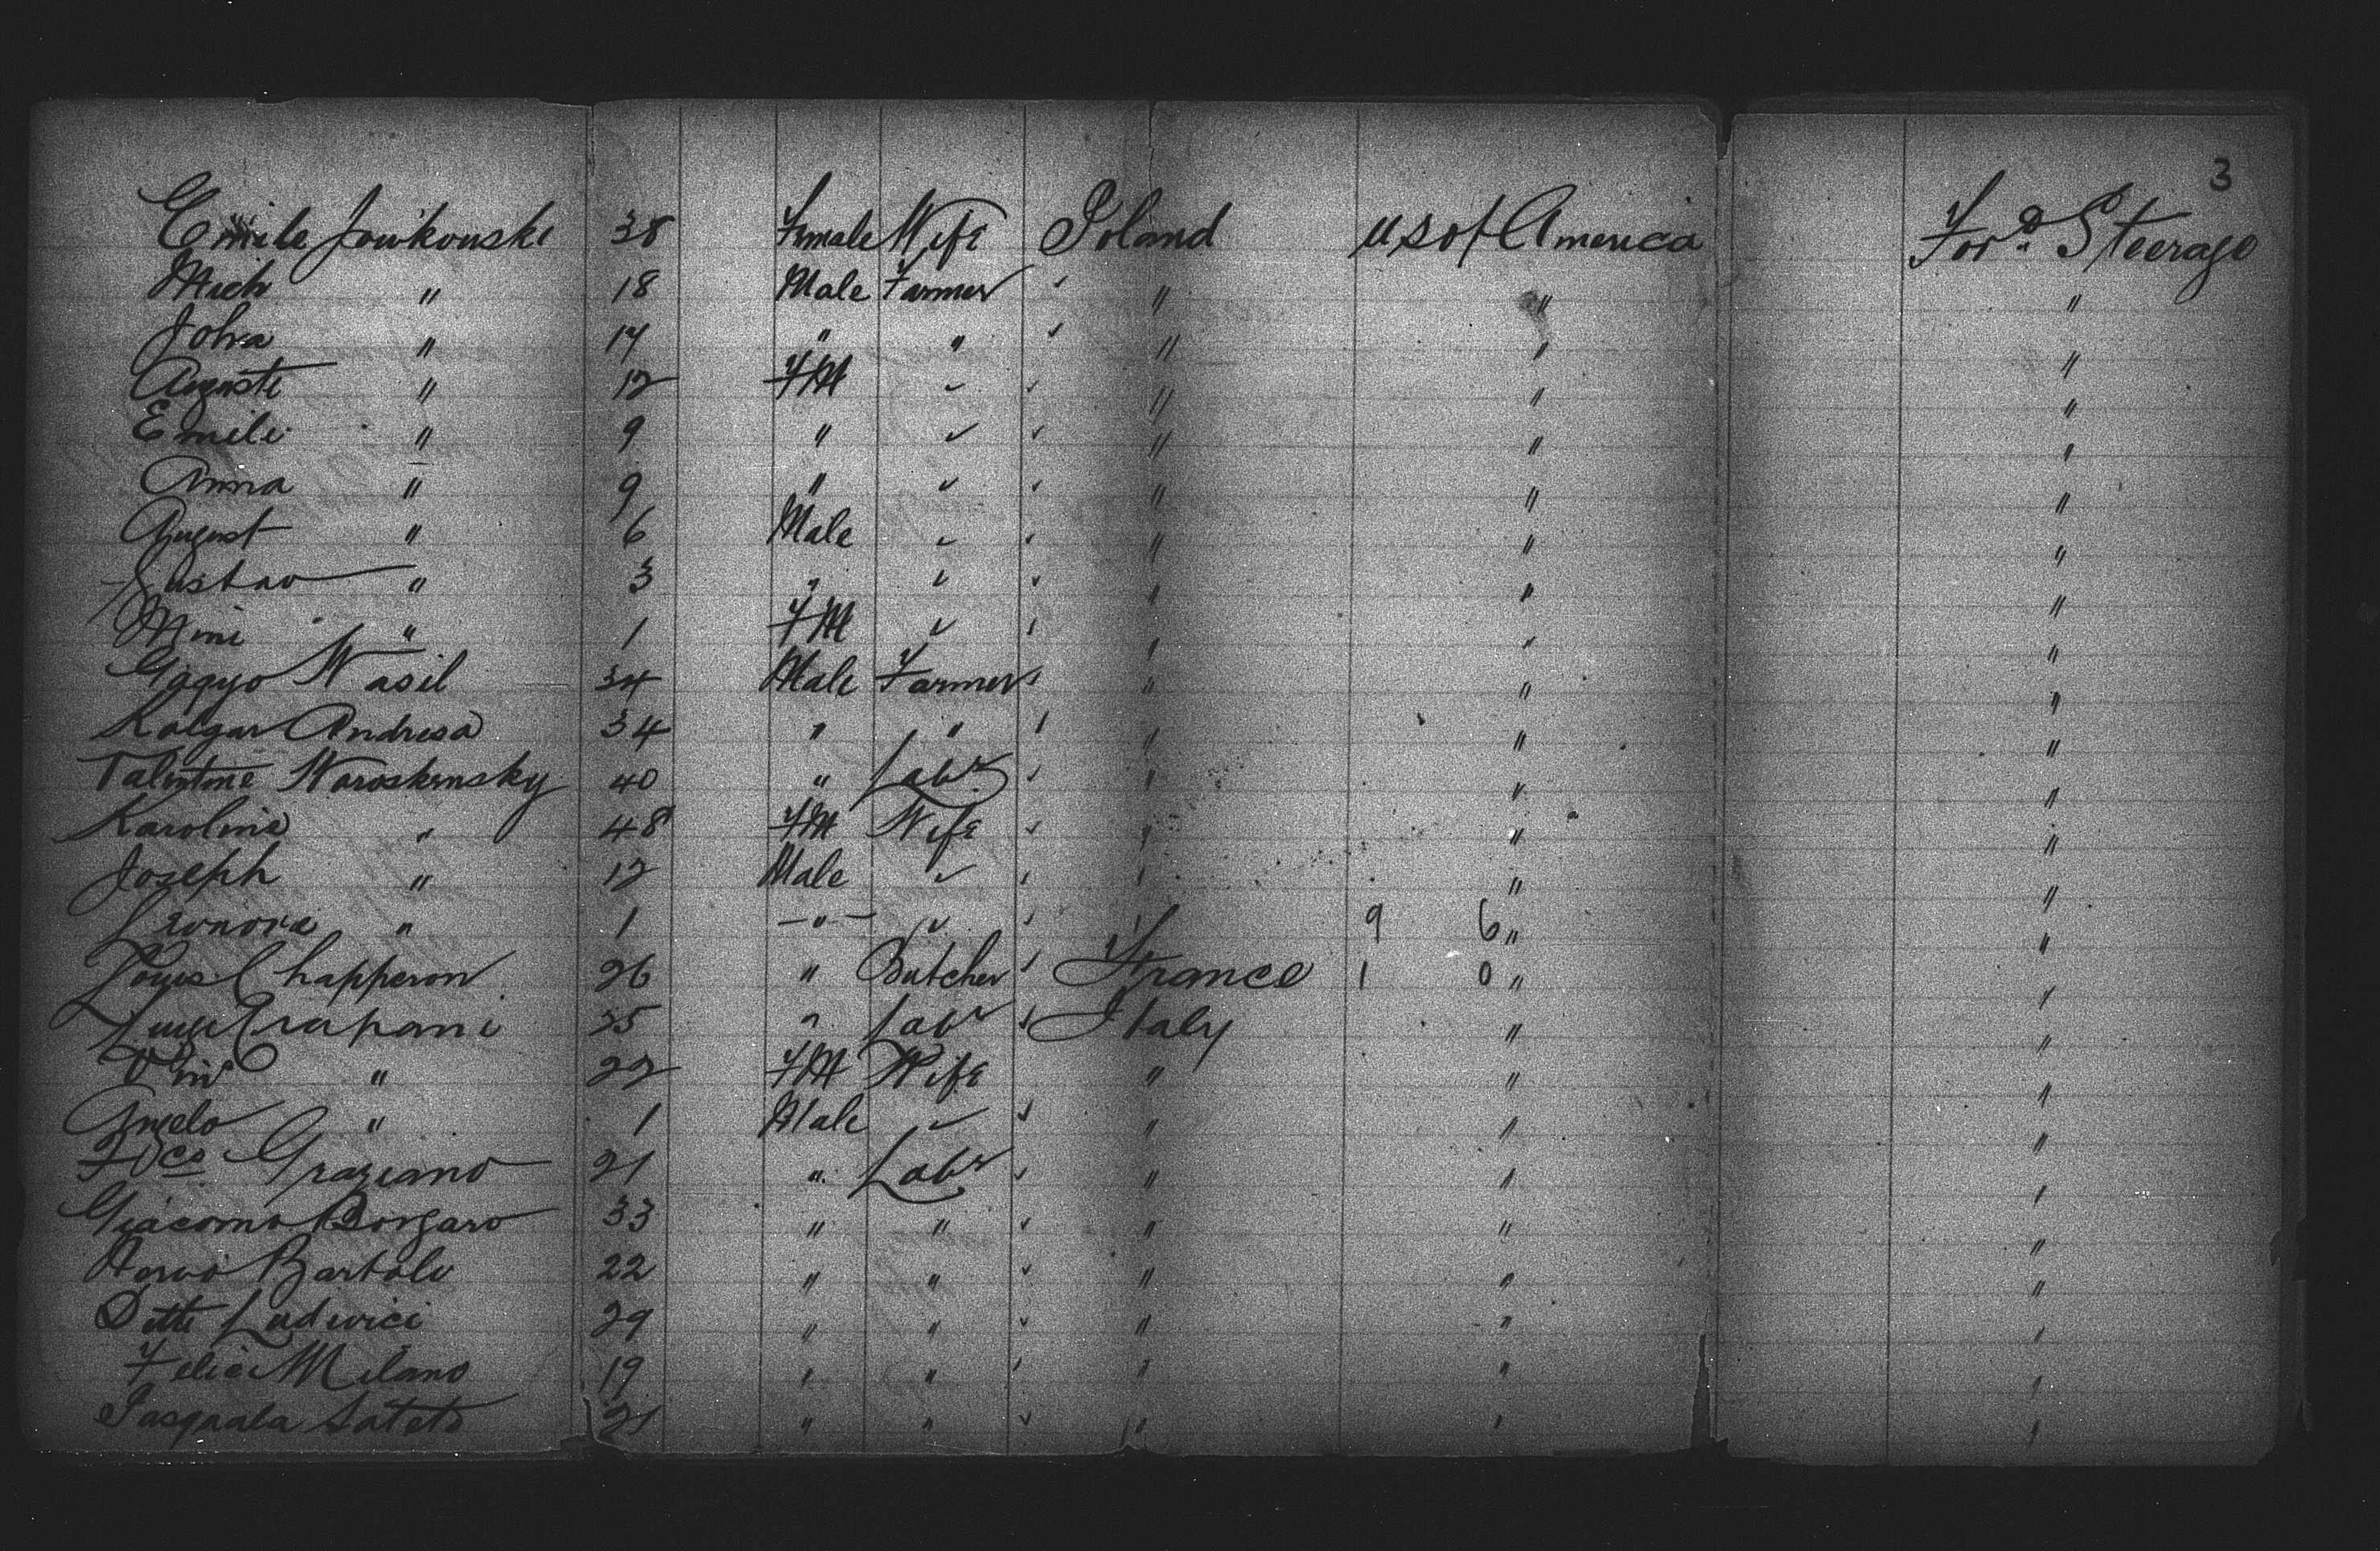 3
Emile Jowikouski 38 Female Wife Poland U S of America For.d Steerage
Mich " 18 Male Farmer " " "
John " 17 " " " " "
Auguste " 12 FM " " "
Emili " 9 " " " "
Anna " 9 " " " "
August " 6 Male " " "
Gustav " 3 " " " "
Mini " 1 FM " " "
Wasil 34 Male Farmer " " "
Andresa 34 " " " " "
Valentine Woroskensky 40 " Labr " " "
Karoline " 48 FM Wife " " "
Joseph " 12 Male " " "
Leonora " 1 " " 9 6 " "
Louis Chapperon 26 " Butcher France 1 0 " "
Luigi Trapani 25 " Labr Italy " "
" 22 FM Wife " " "
Angelo " 1 Male " " "
Fco Graziano 21 " Labr " " "
Giacomo Borgaro 33 " " " " "
Bartolo 22 " " " " "
Dette Ludovici 29 " " " " "
Felice Milano 19 " " " " "
Pasquala Sateto 21 " " " " "